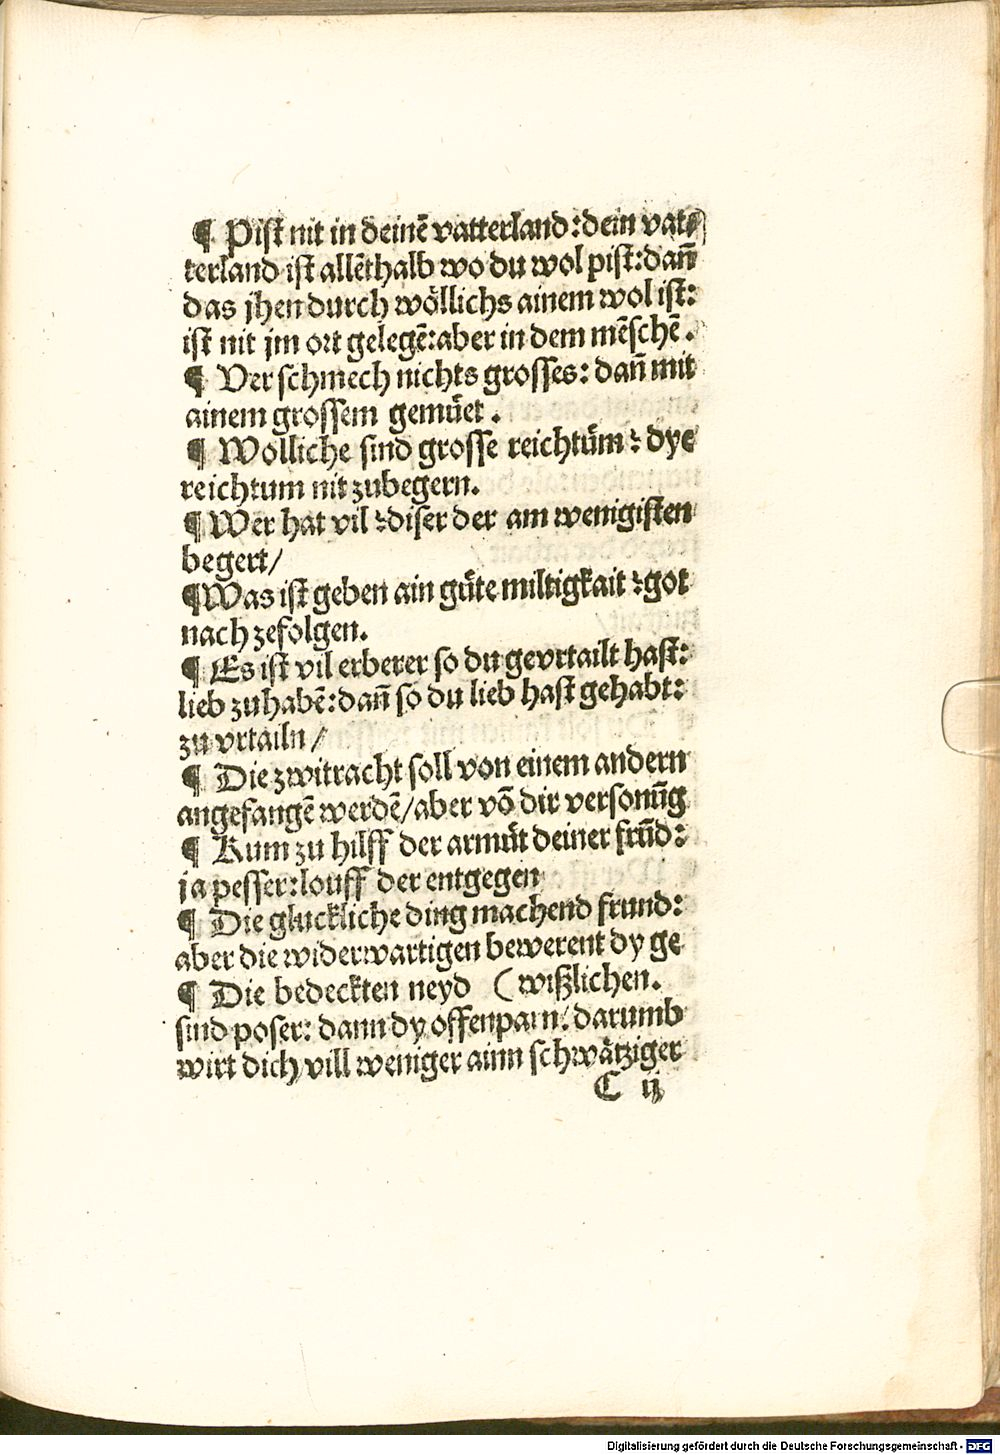 ¶ Pist nit in deinē vatterland: dein vat⸗
terland ist allēthalb wo du wol pist: dañ
das jhen durch wöllichs ainem wol ist:
ist nit jm ort gelegē: aber in dem mēschē.
¶ Verschmech nichts grosses: dañ mit
ainem grossem gemüet.
¶ Wolliche sind grosse reichtüm ꝛ dye
reichtum nit zubegern.
¶ Wer hat vil ꝛ diser der am wenigisten
begert/
¶ Was ist geben ain gůte miltigkait ꝛ got
nach zefolgen.
¶ Es ist vil erberer so du gevrtailt hast:
lieb zu habē: dañ so du lieb hast gehabt:
zu vrtailn/
¶ Die zwitracht soll von einem andern
angefangē werdē/ aber vō dir versonūg
¶ Kum zu hilff der armůt deiner frūd:
ja pesser: louff der entgegen
¶ Die gluckliche ding machend frund:
aber die widerwartigen bewerent dy ge
¶ Die bedeckten neyd ( wißlichen.
sind poser: dann dy offenparn: darumb
wirt dich vill weniger ainn schwätziger
C ij
Digitalisierung gefördert durch die Deutsche Forschungsgemeinschaft - DFG